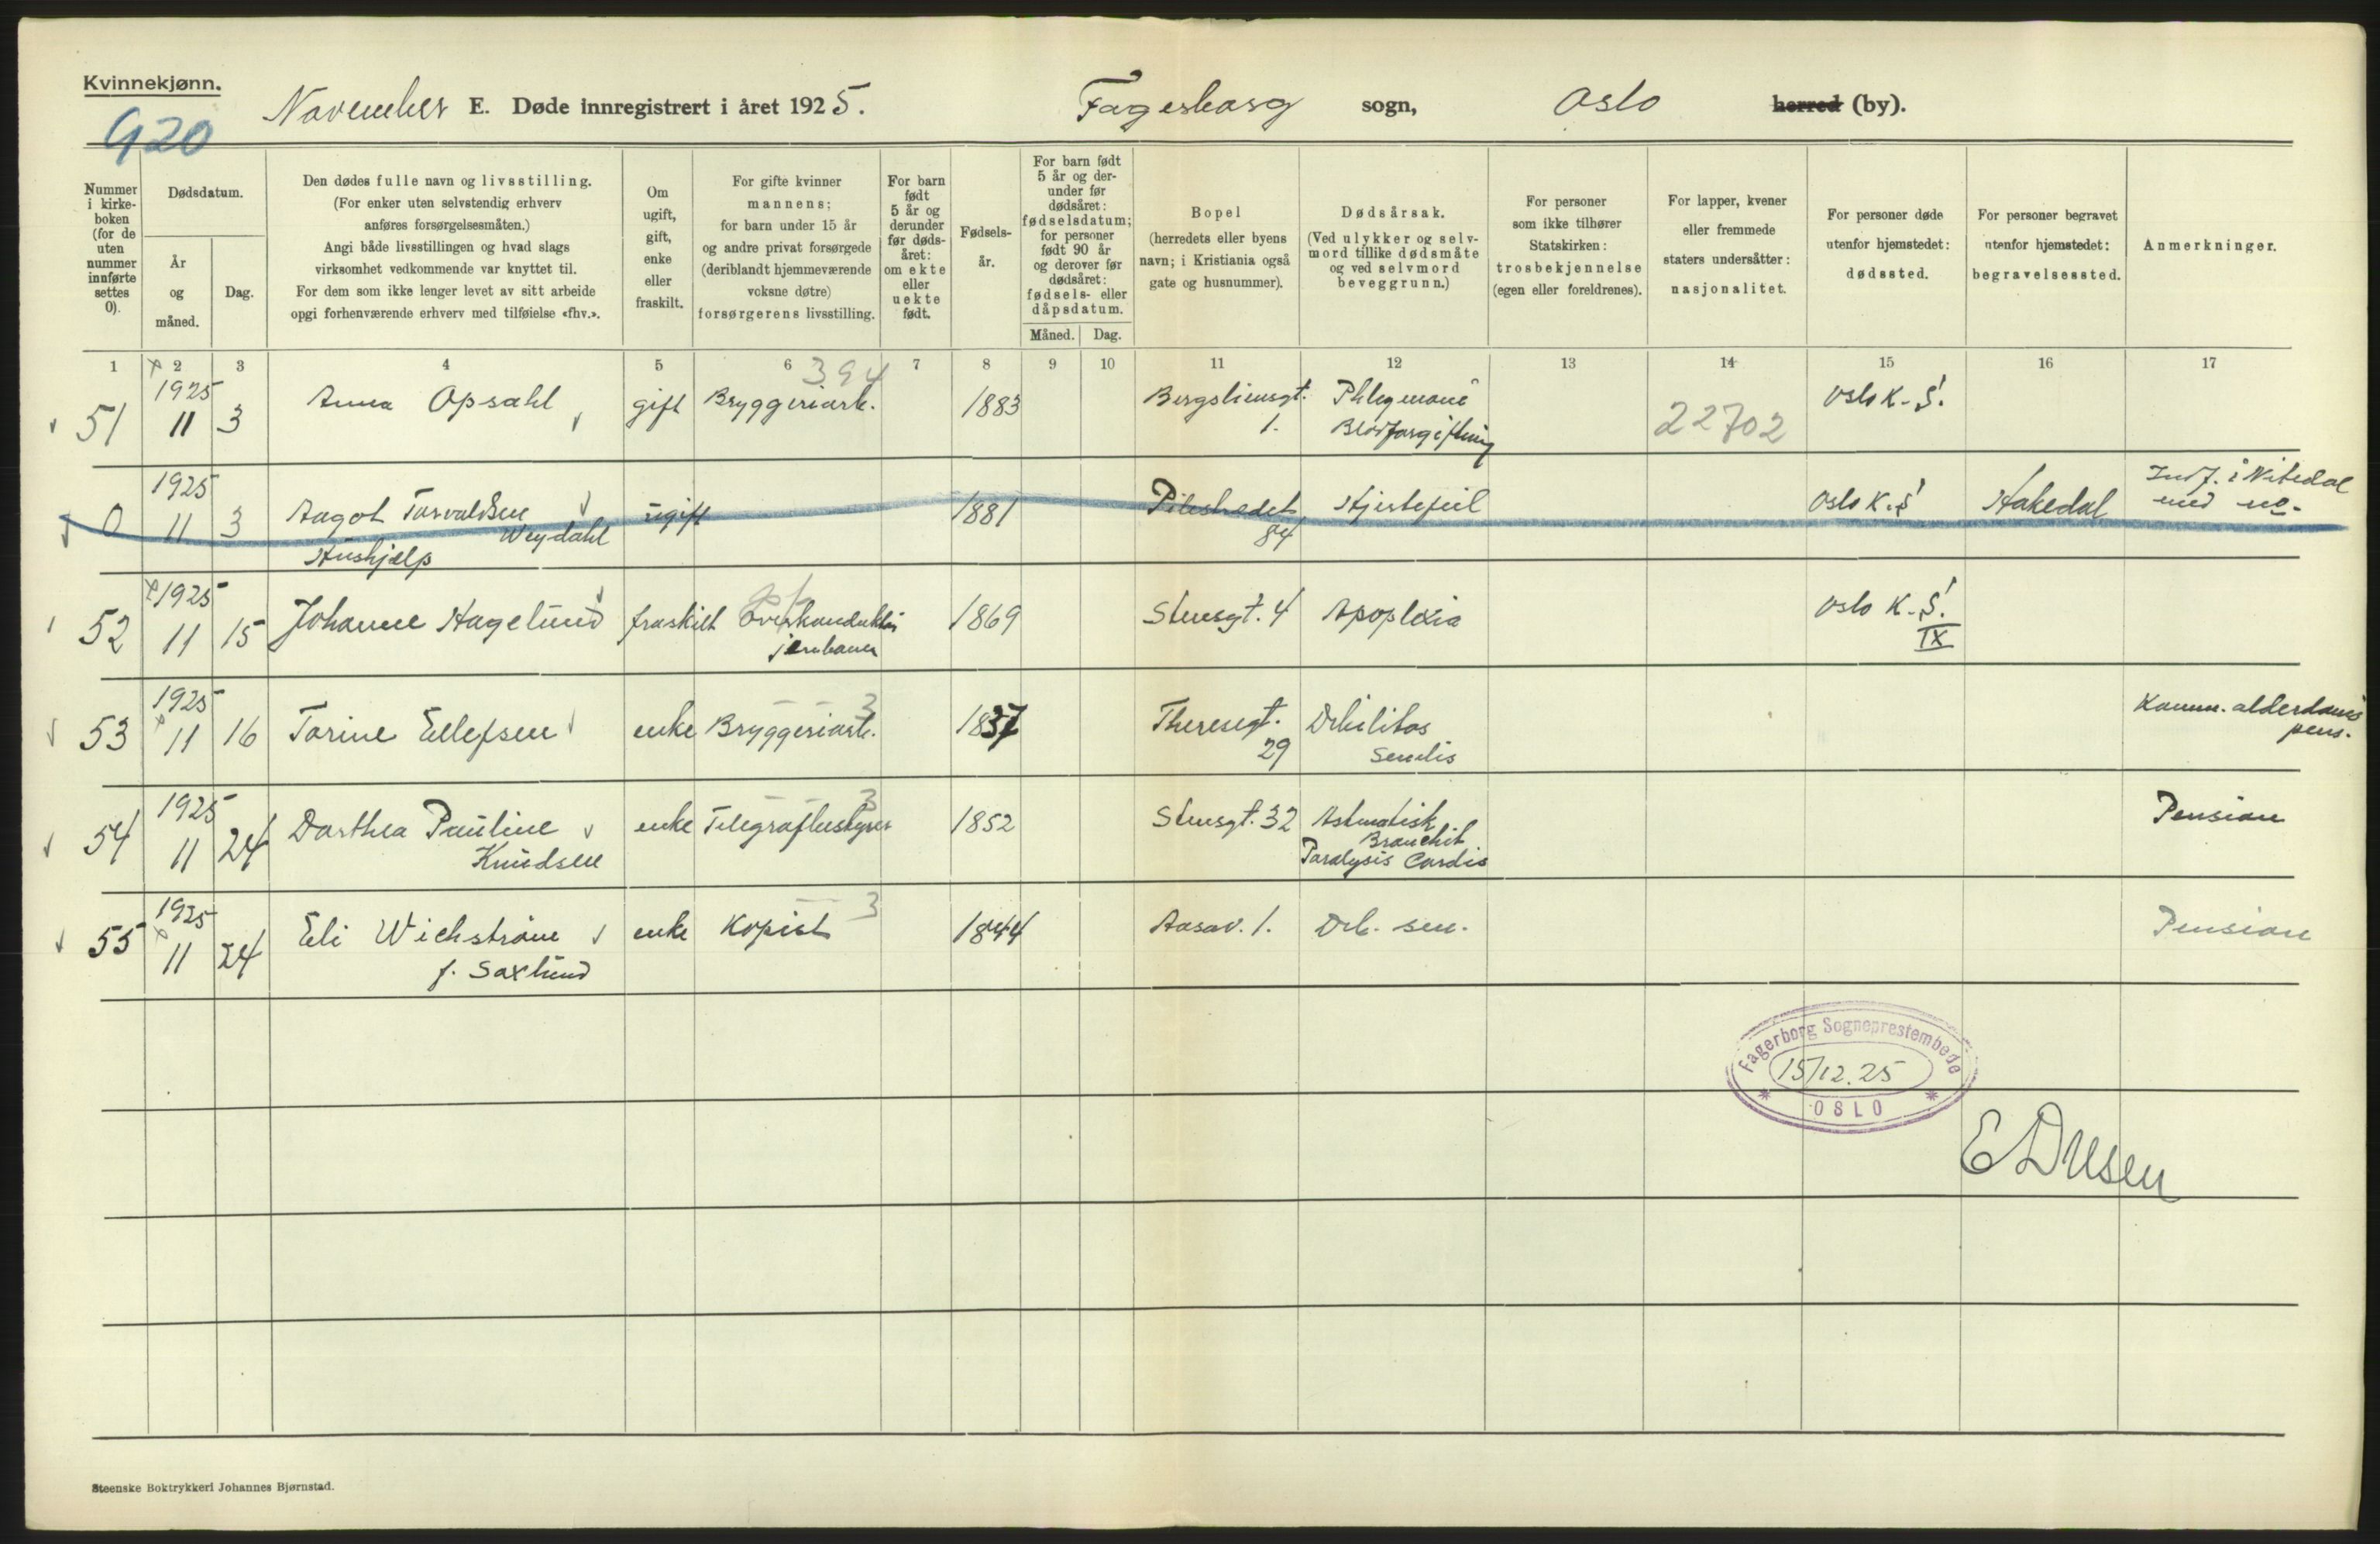 Kvinnekjønn.
920
November E. Døde innregistrert i året 1925. Fagerborg sogn, Oslo herred (by).
Nummer i kirke-boken (for de uten nummer innførte settes 0).
Dødsdatum.
År og måned.
Dag.
Den dødes fulle navn og livsstilling.
(For enker uten selvstendig erhverv
anføres forsørgelsesmåten.)
Angi både livsstillingen og hvad slags
virksomhet vedkommende var knyttet til.
For dem som ikke lenger levet av sitt arbeide
opgi forhenværende erhverv med tilføielse «fhv.».
Om ugift, gift, enke eller fraskilt.
For gifte kvinner
mannens;
for barn under 15 år
og andre privat forsørgede
(deriblandt hjemmeværende
voksne døtre)
forsørgerens livsstilling.
For barn født 5 år og derunder før døds-året: om ekte eller uekte født.
Fødsels-år.
For barn født 5 år og der-under før dødsåret: fødselsdatum; for personer født 90 år og derover før dødsåret: fødsels- eller dåpsdatum.
Måned. Dag.
Bopel
(herredets eller byens
navn; i Kristiania også
gate og husnummer).
Dødsårsak.
(Ved ulykker og selv-
mord tillike dødsmåte
og ved selvmord
beveggrunn.)
For personer
som ikke tilhører
Statskirken:
trosbekjennelse
(egen eller foreldrenes).
For lapper, kvener
eller fremmede
staters undersåtter:
nasjonalitet.
For personer døde
utenfor hjemstedet:
dødssted.
For personer begravet
utenfor hjemstedet:
begravelsessted.
Anmerkninger.
1 2 3 4 5 6 7 8 9 10 11 12 13 14 15 16 17
394
51 1925 11 3 Anna Opsahl gift Bryggeriarb. 1883 Bergsliensgt. 1. Phlegmone Blodforgiftning 22702 Oslo K. S!
0 1925 11 3 Aagot Torvaldsen Weydahl Hushjælp ugift 1881 Pilestredet 84 Hjertefeil Oslo K. S! Hakedal Indf. i Nitedal med no.
52 1925 11 15 Johanne Hagelund fraskilt Overkonduktør jernbanen 1869 Stensgt. 4 Apoplexia Oslo K. S! IX
53 1925 11 16 Torine Ellefsen enke Bryggeriarb. 3 1837 Theresegt. 29 Debilitas Senilis Komm. alderdoms pens.
54 1925 11 24 Dorthea Pauline Knudsen enke Telegrafbestyrer 3 1852 Stensgt. 32 Astmatisk Bronchit Paralysis Cordis Pension
55 1925 11 24 Eli Wichstrøm f. Saxlund enke Kopist 3 1844 Aasav. 1. Deb. sen. Pension
Fagerborg Sogneprestembede
15/12.25
OSLO
Steenske Boktrykkeri Johannes Bjørnstad.